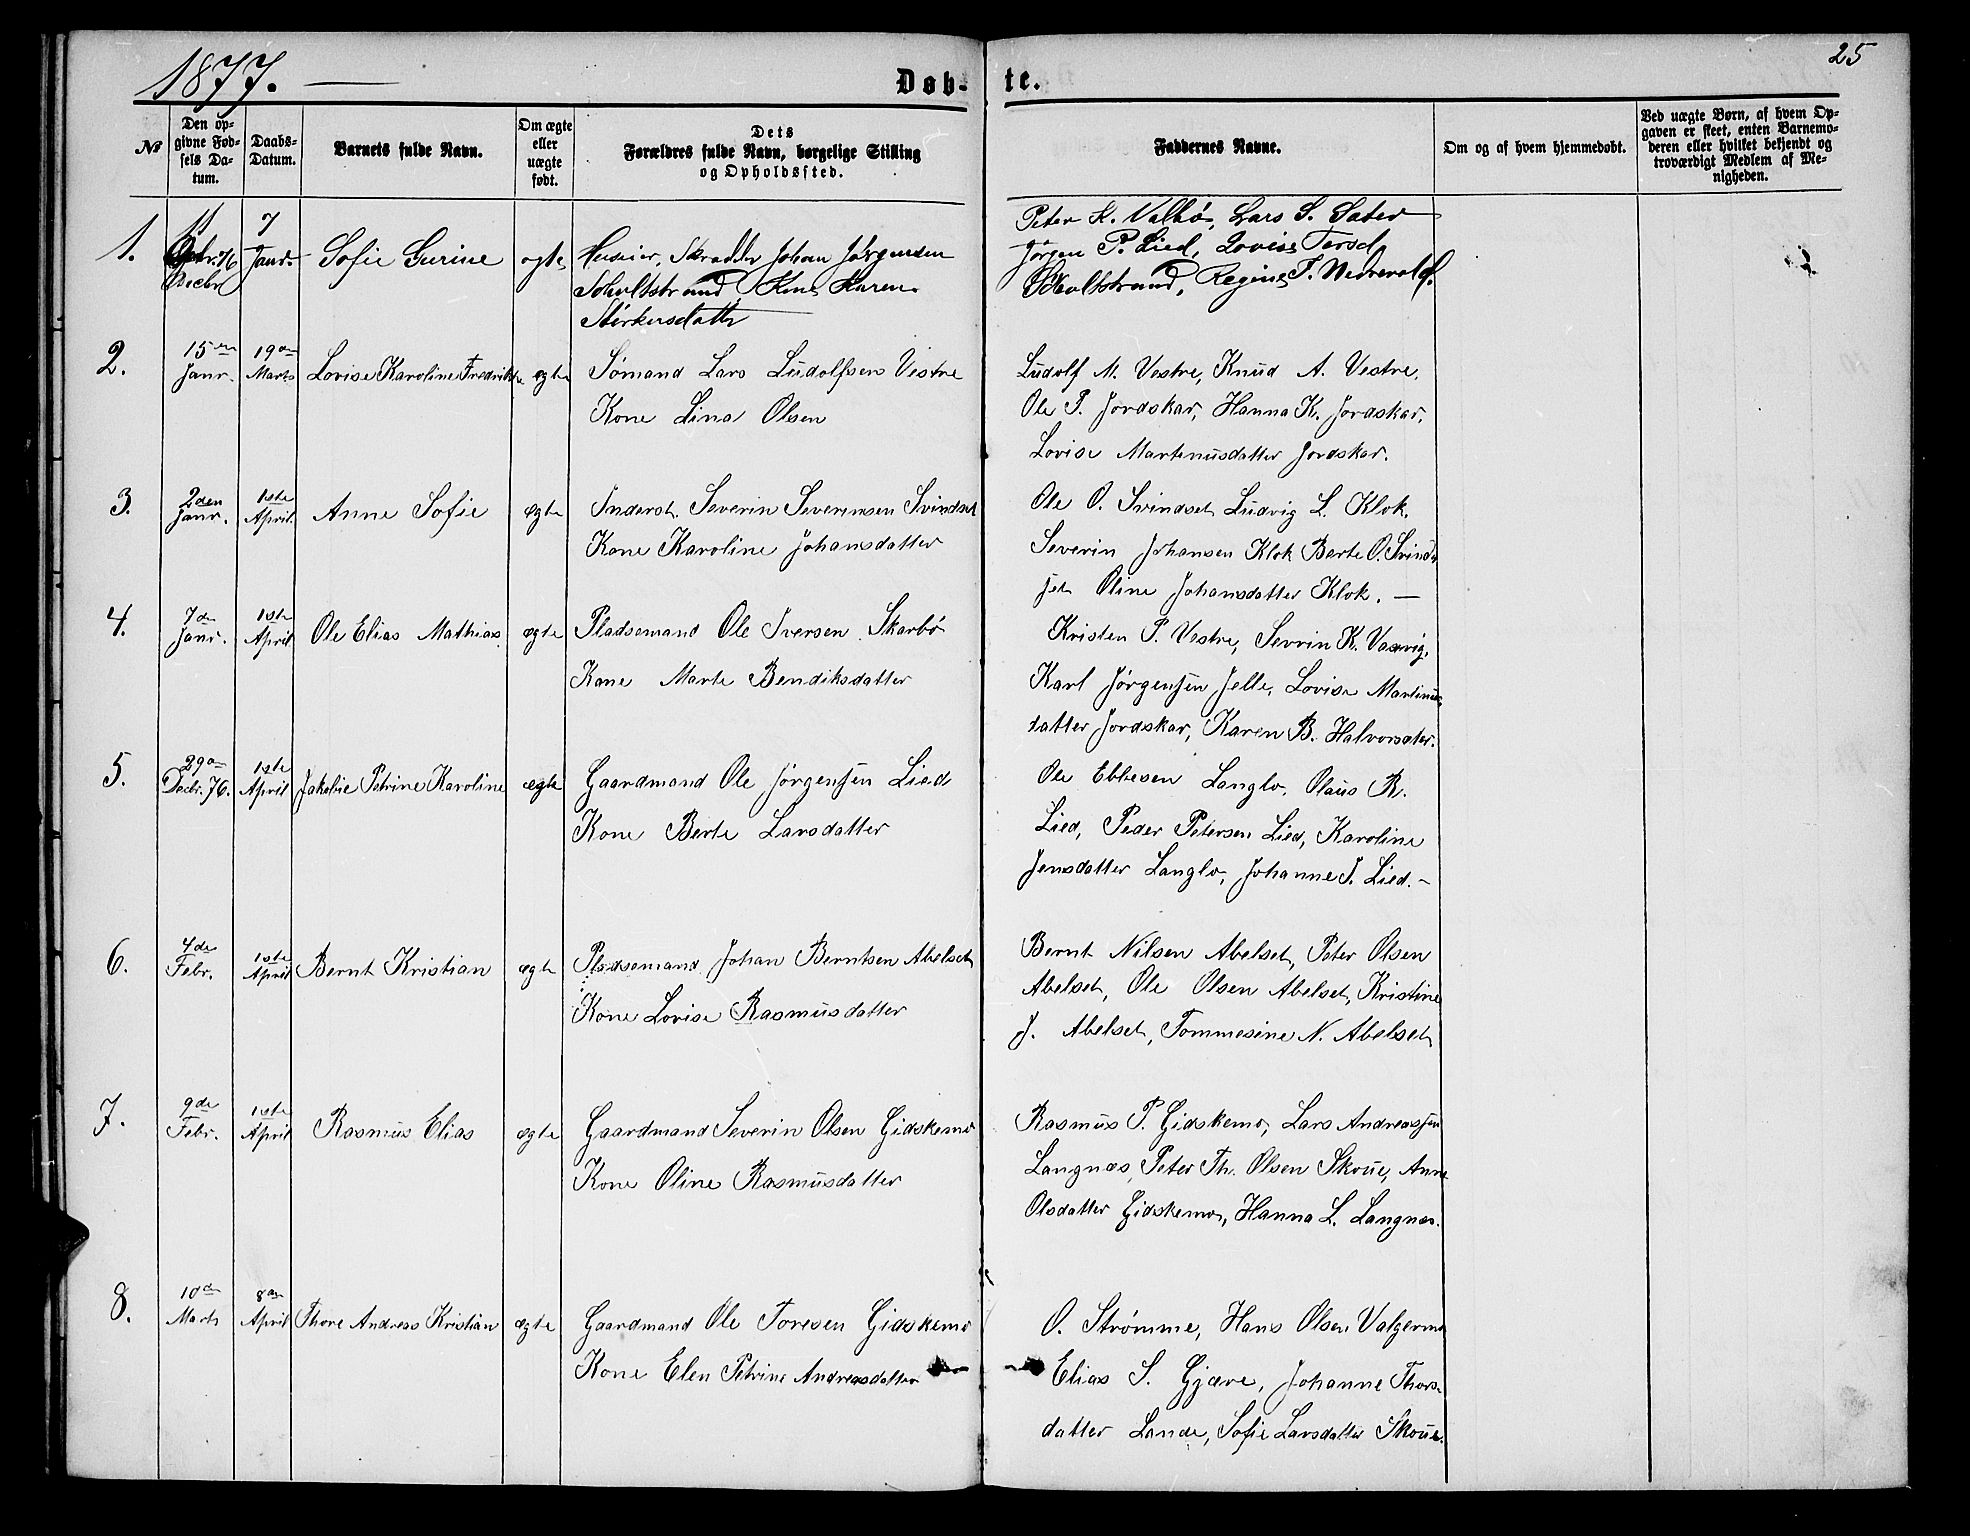 1877. — Døb- te. 25
№
Den op-
givne Fød-
sels Da-
tum.
Daabs-
Datum.
Barnets fulde Navn.
Om ægte
eller
uægte
født.
Dets
Forældres fulde Navn, borgelige Stilling
og Opholdssted.
Faddernes Navne.
Om og af hvem hjemmedøbt.
Ved uægte Børn, af hvem Op-
gaven er skeet, enten Barnemo-
deren eller hvilket bekjendt og
troværdigt Medlem af Me-
nigheden.
1.
11
Decbr 76
7
Janr.
Sofie Gurine
ægte
Skrædder Johan Jørgensen
Kone Karen
Peter K. Valbø, Lars S. Sæter
Jørgen P. Lied, Lovise
Regine T. Nedrevold.
2.
15en
Janr.
19de
Marts
Lovise Karoline Fredrikke
ægte
Sømand Lars Ludolfsen Vestre
Kone Lina Olsen
Ludolf M. Vestre, Knud A. Vestre,
Ole P. Jordskar, Hanna K. Jordskar,
Lovise Martenusdatter Jordskar.
3.
2den
Janr.
1ste
April.
Anne Sofie
ægte
Inderst. Severin Severinsen Svindset
Kone Karoline Johansdatter
Ole O. Svindset Ludvig L. Klok,
Severin Johansen Klok Berte O. Svind-
set Oline Johansdatter Klok. —
4.
7de
Janr.
1ste
April
Ole Elias Mathias
ægte
Pladsemand Ole Iversen Skarbø
Kone Marte Bendiksdatter
Kristen P. Vestre, Sevrin K. Vasvig,
Karl Jørgensen Jelle, Lovise Martinus-
datter Jordskar, Karen B. Halvorsæter.
5.
29de
Decbr. 76.
1ste
April
Jakobie Petrine Karoline
ægte
Gaardmand Ole Jørgensen Lied
Kone Berte Larsdatter
Ole Ebbesen Langlo, Olaus R.
Lied, Peder Petersen Lied, Karoline
Jensdatter Langlo, Johanne J. Lied. –
6.
4de
Febr.
1ste
April
Bernt Kristian
ægte
Pladsemand Johan Berntsen Abelset
Kone Lovise Rasmusdatter
Bernt Nilsen Abelset, Peter Olsen
Abelset, Ole Olsen Abelset, Kristine
J. Abelset, Tommesine N. Abelset
7.
9de
Febr.
1ste
April
Rasmus Elias
ægte
Gaardmand Severin Olsen Gidskemo
Kone Oline Rasmusdatter
Rasmus P. Gidskemo, Lars Andreassen
Langnæs, Peter Th. Olsen Skoue, Anne
Olsdatter Gidskemo, Hanna L. Langnæs.
8.
10de
Marts
8de
April
Thore Andreas Kristian
ægte
Gaardmand Ole Toresen Gidskemo
Kone Elen Petrine Andreasdatter
O. Strømme, Hans Olsen Valgermo
Elias S. Gjære, Johanne Thors-
datter Lande, Sofie Larsdatter Skoue.